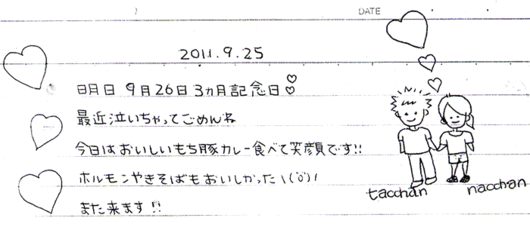 DATE
2011.9.25
明日 9月26日 3ヵ月記念日♡♡
最近泣いちゃってごめんね
今日はおいしいもち豚カレー食べて笑顔です!!
ホルモンやきそばもおいしかった \(˙o˙)/
また来ます!!
tacchan nacchan